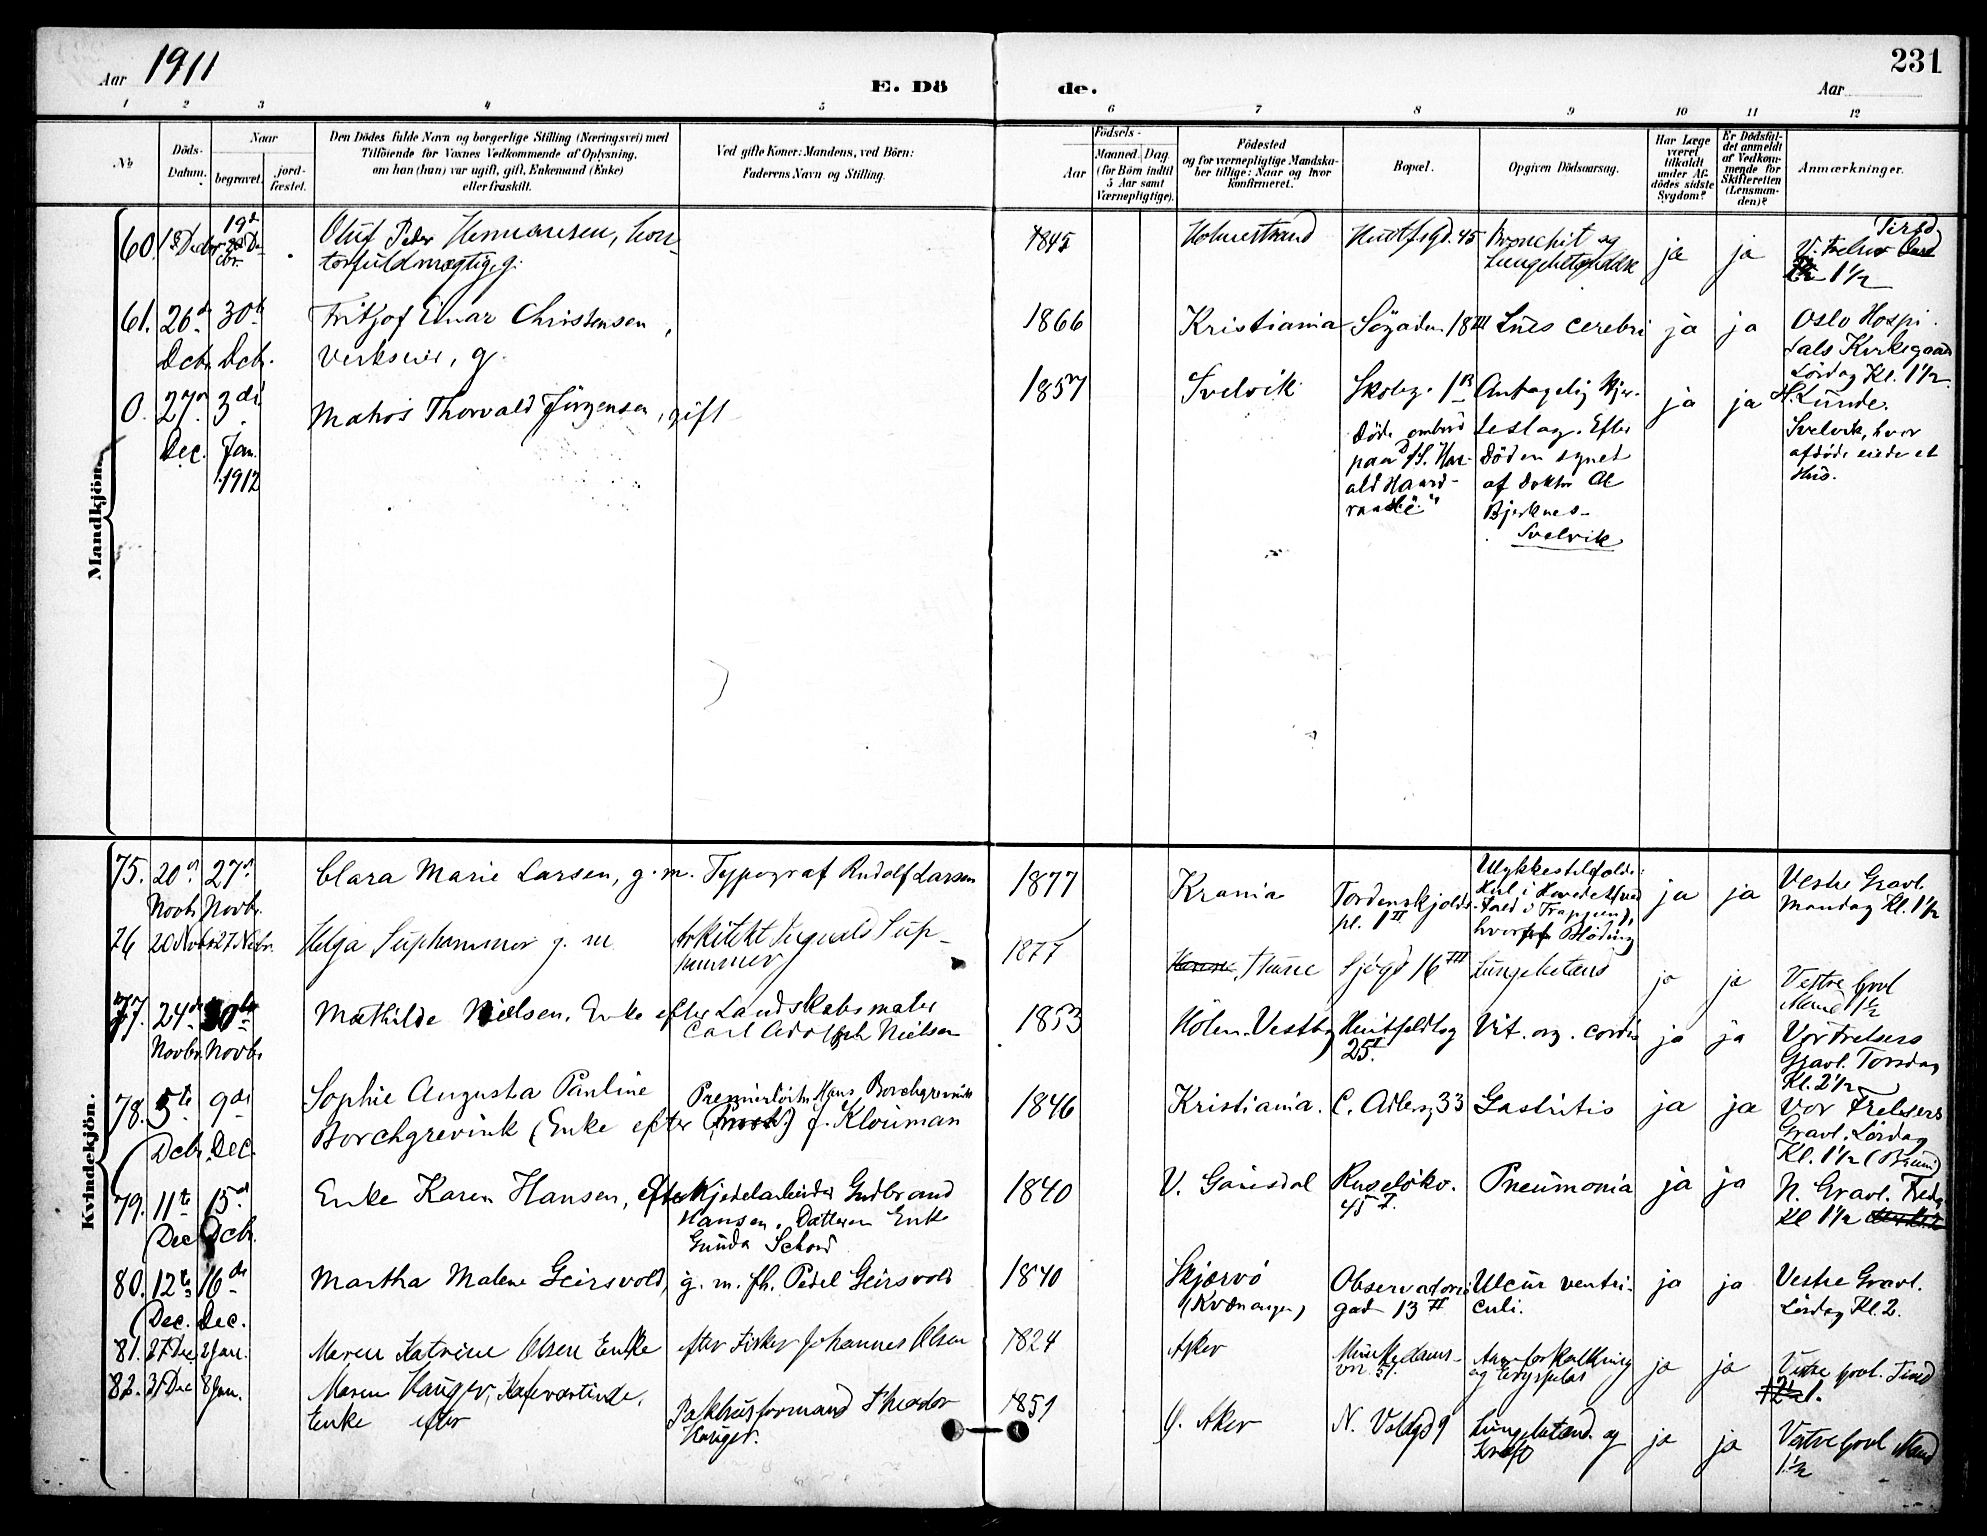 Aar 1911
E. Dö de.
231
Aar
1 2 3 4 5 6 7 8 9 10 11 12
No
Döds-
Datum.
Naar
begravet.
jord-
fæstet.
Den Dödes fulde Navn og borgerlige Stilling (Næringsvei) med
Tilföiende for Voxnes Vedkommende af Oplysning,
om han (hun) var ugift, gift, Enkemand (Enke)
eller fraskilt.
Ved gifte Koner: Mandens, ved Börn:
Faderens Navn og Stilling.
Födsels-
Aar
Maaned. Dag
(for Börn indtil
5 Aar samt
Værnepligtige).
Födested
og for værnepligtige Mandska-
ber tillige: Naar og hvor
konfirmeret.
Bopæl.
Opgiven Dödsaarsag.
Har Læge
været
tilkaldt
under Af-
dödes sidste
Sygdom?
Er Dödsfal-
det anmeldt
af Vedkom-
mende for
Skifteretten
(Lensman-
den)?
Anmærkninger.
Mandkjön.
60. 19d
Oluf Peder Hermansen, kon-
torfuldmægtig, g.
1845 Holmestrand 45 Bronchit og
ja ja
V. Frelser
1½
61. 26d Dcbr. 30te Dcbr.
Fritjof Einar Christensen,
Verkseier, g.
1866 Kristiania 18III Lues cerebri ja ja
Oslo Hospi-
tals Kirkegaard
Lördag Kl. 1½
0. 27d Dec. 3di Jan. 1912
Matros Thorvald Jörgensen, gift
1857 Svelvik Skobg. 1B
Döde ombord
paa S/S. Har-
ald Haard-
raade"
Antagelig Hjer-
teslag. Efter
Döden synet
af Doktor
Bjerknes-
Svelvik
ja ja
H. Lunde.
Svelvik, hvor
afdöde eiede et
Hus.
Kvindekjön.
75. 20d Novbr. 27d Novbr.
Clara Marie Larsen, g. m. Typograf Rudolf Larsen
1877 Krania Tordenskjolds
pl. 1II
Ulykkestilfælde:
Hul i Hovedet (ved
Fald i Trappen),
hvorpaa Blöding
ja ja
Vestre Gravl.
Mandag Kl. 1½
76 20 Novbr 27 Novbr.
Helga Suphammer g. m. Arkitekt Sigurds Sup-
hammer
1877 16III Lungebetænd ja ja
Vestre Gravl
Mand 1½
77. 24de Novbr. 30te Novbr
Mathilde Nielsen, Enke efter Landskabsmaler
Carl Adolph Nielsen
1853 Hölen. Vestby Huitfeldtsg
25I.
Vit. org. cordis ja ja
Vor Frelsers
Gravl. Torsdag
Kl. 2½
78. 5te Dcbr. 9de Dec.
Sophie Augusta Pauline
Borchgrevink (Enke efter
Premierlöitn. Hans Borchgrevink
f. Klouman
1846 Kristiania. C. Adlersg 33 Gastritis ja ja
Vor Frelsers
Gravl. Lördag
Kl. 1½ (Bruun)
79. 11te Dec 15d Dcbr.
Enke Karen Hansen, efter Kjedelarbeider Gudbrand
Hansen. Datteren Enke
Gunda Schou
1840 V. Gausdal Ruselökv.
45 I.
Pneumonia ja ja
N. Gravl. Fredag
Kl 1½
80. 12te Dec. 16de Dec.
Martha Malene Geirsvold, g. m. fh. Pedel Geirsvold
1840 Skjærvö
(Kvænangen)
Observatorie
gad 13 II
Ulcus ventri-
culi.
ja ja
Vestre Gravl.
Lördag Kl. 2.
81. 27 Dec 2 Jan.
Maren Katrine Olsen Enke efter Fisker Johannes Olsen
1824 Asker Munkedams-
vei 51.
Aareforkalkning
og Erysipelas
ja ja
Vestre Gravl. Tirsd
1.
82. 31 Dec 8 Jan.
Maren Hauger, Kafeværtinde,
Enke efter
Pakhusformand Theodor
Hauger.
1851 Ø. Aker N. Voldgd 9 Lungebetænd. og
Kræft
ja ja
Vestre Gravl Mand
1½